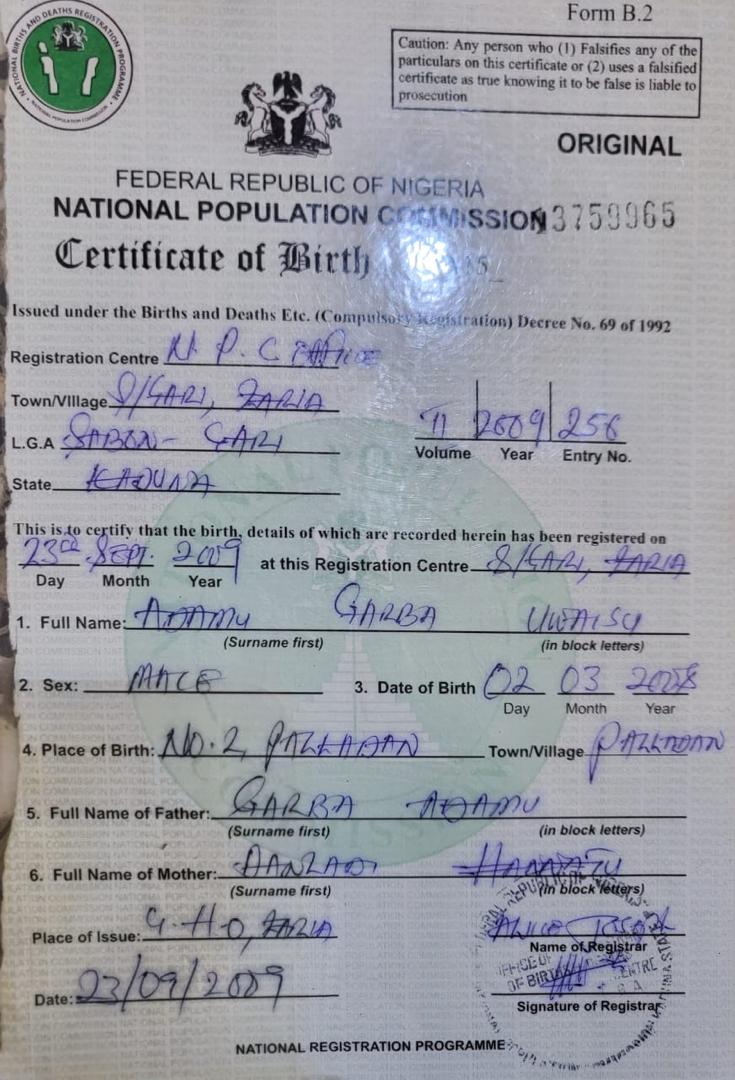 Form B.2
NATIONAL BIRTHS AND DEATHS REGISTRATION PROGRAMME
NATIONAL POPULATION COMMISSION
Caution: Any person who (1) Falsifies any of the
particulars on this certificate or (2) uses a falsified
certificate as true knowing it to be false is liable to
prosecution
ORIGINAL
FEDERAL REPUBLIC OF NIGERIA
NATIONAL POPULATION COMMISSION 3759965
Certificate of Birth
Issued under the Births and Deaths Etc. (Compulsory Registration) Decree No. 69 of 1992
Registration Centre N. P. C
Town/Village S/GARI, ZARIA
L.G.A SABON-GARI
2009 256
Volume Year Entry No.
State KADUNA
This is to certify that the birth, details of which are recorded herein has been registered on
23rd SEPT. 2009 at this Registration Centre S/GARI, ZARIA
Day Month Year
1. Full Name: ADAMU GARBA UWAISU
(Surname first) (in block letters)
2. Sex: MALE 3. Date of Birth 02 03
Day Month Year
4. Place of Birth: NO. 2, PALLADAN Town/Village PALLADAN
5. Full Name of Father: GARBA ADAMU
(Surname first) (in block letters)
6. Full Name of Mother: DANLADI
(Surname first) (in block letters)
Place of Issue: G.H.O, ZARIA
Name of Registrar
OFFICE OF
OF BIRTH
CENTRE
Date: 23/09/2009
Signature of Registrar
NATIONAL REGISTRATION PROGRAMME